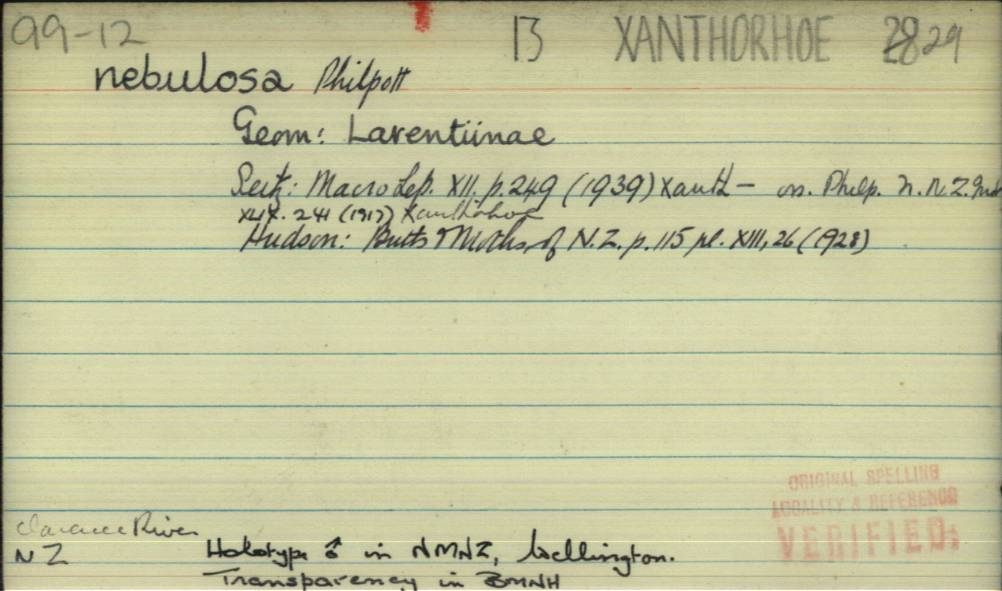 99-12 13 XANTHORHOE 29
nebulosa Philpott
Geom: Larentiinae
Seitz: Macro Lep. XII. p. 249 (1939) Xanth - in. Philp. N.Z.
XLIX. 241 (1917) Xanthorhoe
Hudson: Butts & Moths of N.Z. p. 115 pl. XIII, 26 (1928)
ORIGINAL SPELLING
LOCALITY & REFERENCE
VERIFIED:
Clarence River
NZ Holotype ♂ in NMNZ, Wellington.
Transparency in BMNH